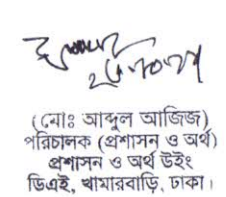 (মোঃ আব্দুল আজিজ)
পরিচালক (প্রশাসন ও অর্থ)
প্রশাসন ও অর্থ উইং
ডিএই, খামারবাড়ি, ঢাকা।